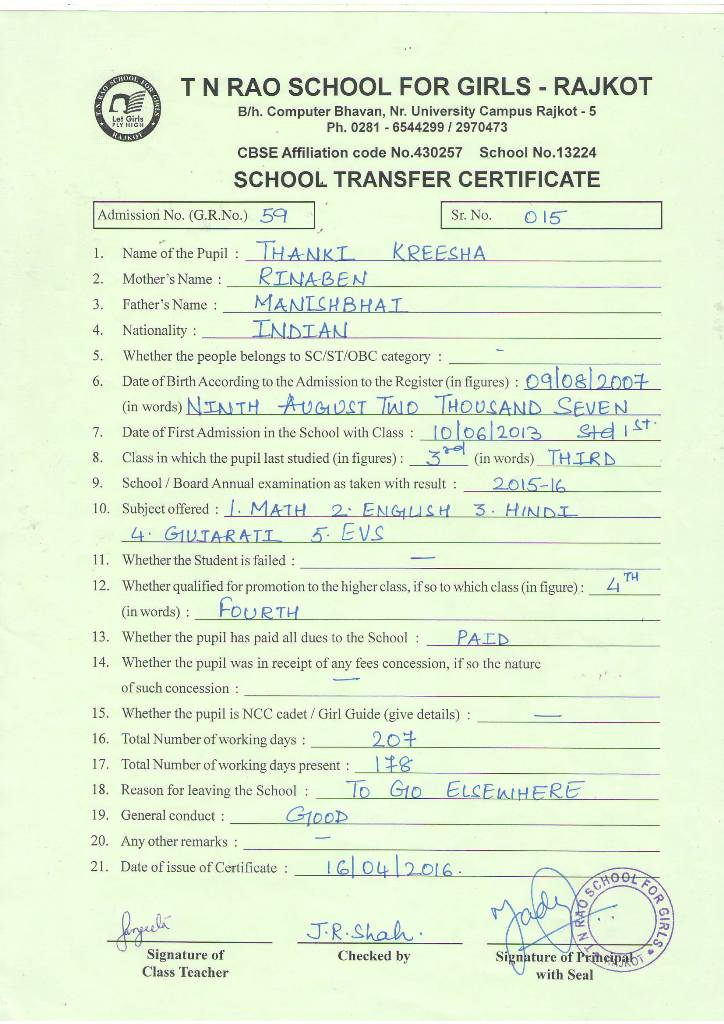 T. N. RAO SCHOOL FOR GIRLS
Let Girls
FLY HIGH
RAJKOT
T N RAO SCHOOL FOR GIRLS - RAJKOT
B/h. Computer Bhavan, Nr. University Campus Rajkot - 5
Ph. 0281 - 6544299 / 2970473
CBSE Affiliation code No.430257 School No.13224
SCHOOL TRANSFER CERTIFICATE
Admission No. (G.R.No.) 59 Sr. No. 015
1. Name of the Pupil : THANKI KREESHA
2. Mother's Name : RINABEN
3. Father's Name : MANISHBHAI
4. Nationality : INDIAN
5. Whether the people belongs to SC/ST/OBC category : -
6. Date of Birth According to the Admission to the Register (in figures) : 09/08/2007
(in words) NINTH AUGUST TWO THOUSAND SEVEN
7. Date of First Admission in the School with Class : 10/06/2013 Std 1st.
8. Class in which the pupil last studied (in figures) : 3rd (in words) THIRD
9. School / Board Annual examination as taken with result : 2015-16
10. Subject offered : 1. MATH 2. ENGLISH 3. HINDI
4. GUJARATI 5. EVS
11. Whether the Student is failed : —
12. Whether qualified for promotion to the higher class, if so to which class (in figure) : 4TH
(in words) : FOURTH
13. Whether the pupil has paid all dues to the School : PAID
14. Whether the pupil was in receipt of any fees concession, if so the nature
of such concession : —
15. Whether the pupil is NCC cadet / Girl Guide (give details) : —
16. Total Number of working days : 207
17. Total Number of working days present : 178
18. Reason for leaving the School : TO GO ELSEWHERE
19. General conduct : GOOD
20. Any other remarks : —
21. Date of issue of Certificate : 16/04/2016.
J.R.Shah.
Signature of
Class Teacher
Checked by
Signature of Principal
with Seal
T N RAO SCHOOL FOR GIRLS
RAJKOT